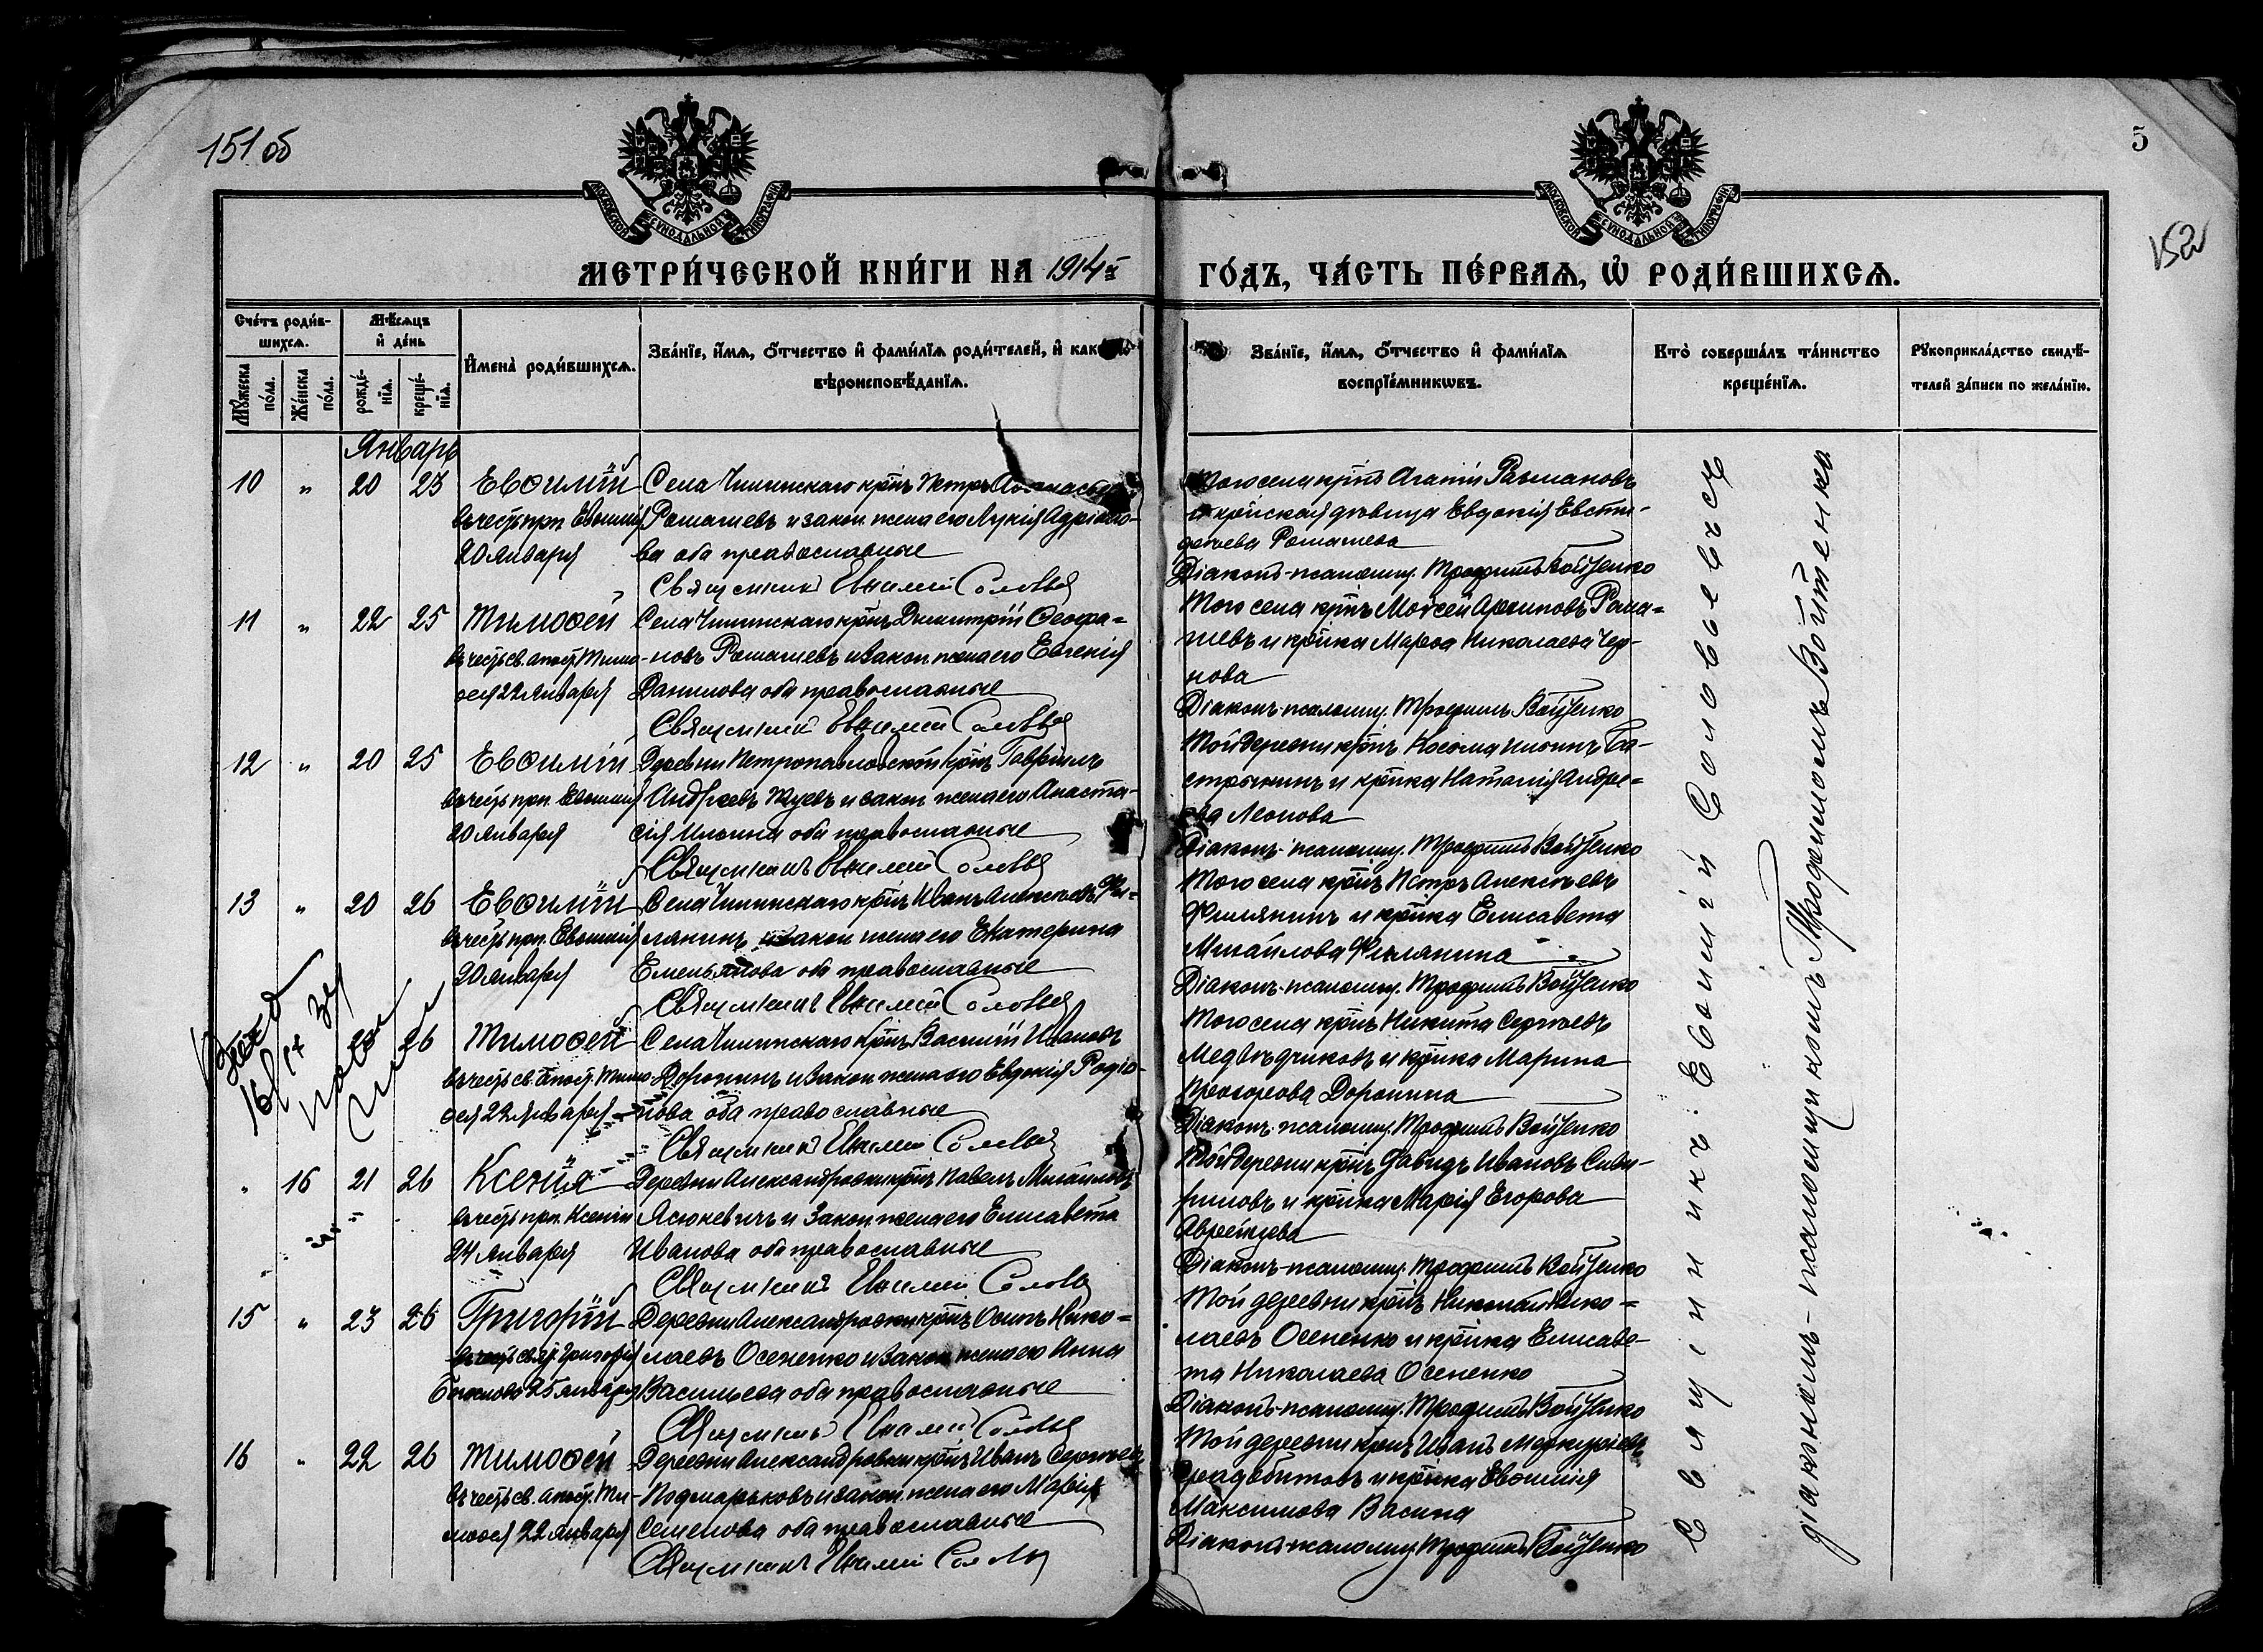 151 об
5
152
МОСКОВСКОЙ СѴНОДАЛЬНОЙ ТИПОГРАФІИ
МОСКОВСКОЙ СѴНОДАЛЬНОЙ ТИПОГРАФІИ
МЕТРИ́ЧЕСКОЙ КНИ́ГИ НА 1914й ГО́ДЪ, ЧА́СТЬ ПЕ́РВАѦ, Ѡ҆ РОДИ́ВШИХСѦ.
Сче́тъ роди́в-
шихсѧ.
Мꙋ́жеска
по́ла.
Же́нска
по́ла.
Мѣ́сѧцъ
и҆ де́нь
рожде́-
нїѧ.
креще́-
нїѧ.
И҆мена̀ роди́вшихсѧ.
Зва́нїе, и҆́мѧ, ѻ҆́тчество и҆ фами́лїѧ роди́телей, и҆
вѣроисповѣ́данїѧ.
Зва́нїе, и҆́мѧ, ѻ҆́тчество и҆ фами́лїѧ
воспрїе́мникѡвъ.
Кто̀ соверша́лъ та́инство
креще́нїѧ.
Рꙋкоприкла́дство свидѣ́-
телей за́писи по жела́нїю.
Январь
10 " 20 23 Евѳимій
въ честь прп. Евѳимія
20 Января
Села кр-нъ Петръ
Ромашевъ и закон. жена его Лукія Адріано-
ва оба православные
Священникъ Евѳимій Соловьев
Того села кр-нъ Агапій
и кр-нская дѣвица Евдокія Евсти-
гнѣева Ромашева
Діаконъ-псаломщ. Трофимъ Войтенко
11 " 22 25 Тимоѳей
въ честь св. апост. Тимо-
ѳея 22 Января
Села кр-нъ Димитрій Ѳеофа-
новъ Ромашевъ и закон. жена его Евгенія
Данилова оба православные
Священникъ Евѳимій Соловьев
Того села кр-нъ Моѵсей Архиповъ Рома-
шевъ и кр-нка Марѳа Николаева Чер-
нова
Діаконъ-псаломщ. Трофимъ Войтенко
12 " 20 25 Евѳимій
въ честь прп. Евѳимія
20 Января
Деревни Петропавловской кр-нъ Гавріилъ
Андреевъ и закон. жена его Анаста-
сія Ильина оба православные
Священникъ Евѳимій Соловьев
Той деревни кр-нъ Косома Ильинъ
и кр-нка Наталія Андре-
ева Леонова
Діаконъ-псаломщ. Трофимъ Войтенко
13 " 20 26 Евѳимій
въ честь прп. Евѳимія
20 Января
Села кр-нъ Иванъ Алексѣевъ Фи-
лянинъ и закон. жена его Екатерина
Емельянова оба православные
Священникъ Евѳимій Соловьев
Того села кр-нъ Петръ Алексѣевъ
Филянинъ и кр-нка Елисавета
Михайлова Филянина
Діаконъ-псаломщ. Трофимъ Войтенко
26 Тимоѳей
въ честь св. апост. Тимо
ѳея 22 Января
Села кр-нъ Василій Ивановъ
Доронинъ и закон. жена его Евдокія Родіо-
нова оба православные
Священникъ Евѳимій Соловьев
Того села кр-нъ Никита Сергѣевъ
Медвѣдчиковъ и кр-нка Марина
Прохорова Доронина
Діаконъ-псаломщ. Трофимъ Войтенко
" 16 21 26 Ксенія
въ честь прп. Ксеніи
24 Января
Деревни Александровки кр-нъ Павелъ Михайловъ
Ясюкевичъ и закон. жена его Елисавета
Иванова оба православные
Священникъ Евѳимій Соловьев
Той деревни кр-нъ Давидъ Ивановъ
и кр-нка Марія Егорова
Діаконъ-псаломщ. Трофимъ Войтенко
15 " 23 26 Григорій
въ честь Григорія
Богослова 25 Января
Деревни Александровки кр-нъ Осипъ Нико-
лаевъ Осененко и закон. жена его Анна
Васильева оба православные
Священникъ Евѳимій Соловьев
Той деревни кр-нъ Николай Нико-
лаевъ Осененко и кр-нка Елисаве-
та Николаева Осененко
Діаконъ-псаломщ. Трофимъ Войтенко
16 " 22 26 Тимоѳей
въ честь св. апост. Ти-
моѳея 22 Января
Деревни Александровки кр-нъ Иванъ Сергѣевъ
Подмарьковъ и закон. жена его Марія
Семенова оба православные
Священникъ Евѳимій Соловьев
Той деревни кр-нъ Иванъ Меркурьевъ
и кр-нка Евѳимія
Максимова Васина
Діаконъ-псаломщ. Трофимъ Войтенко
Священникъ Евѳимій Соловьевъ съ
діакономъ-псаломщикомъ Трофимомъ Войтенко